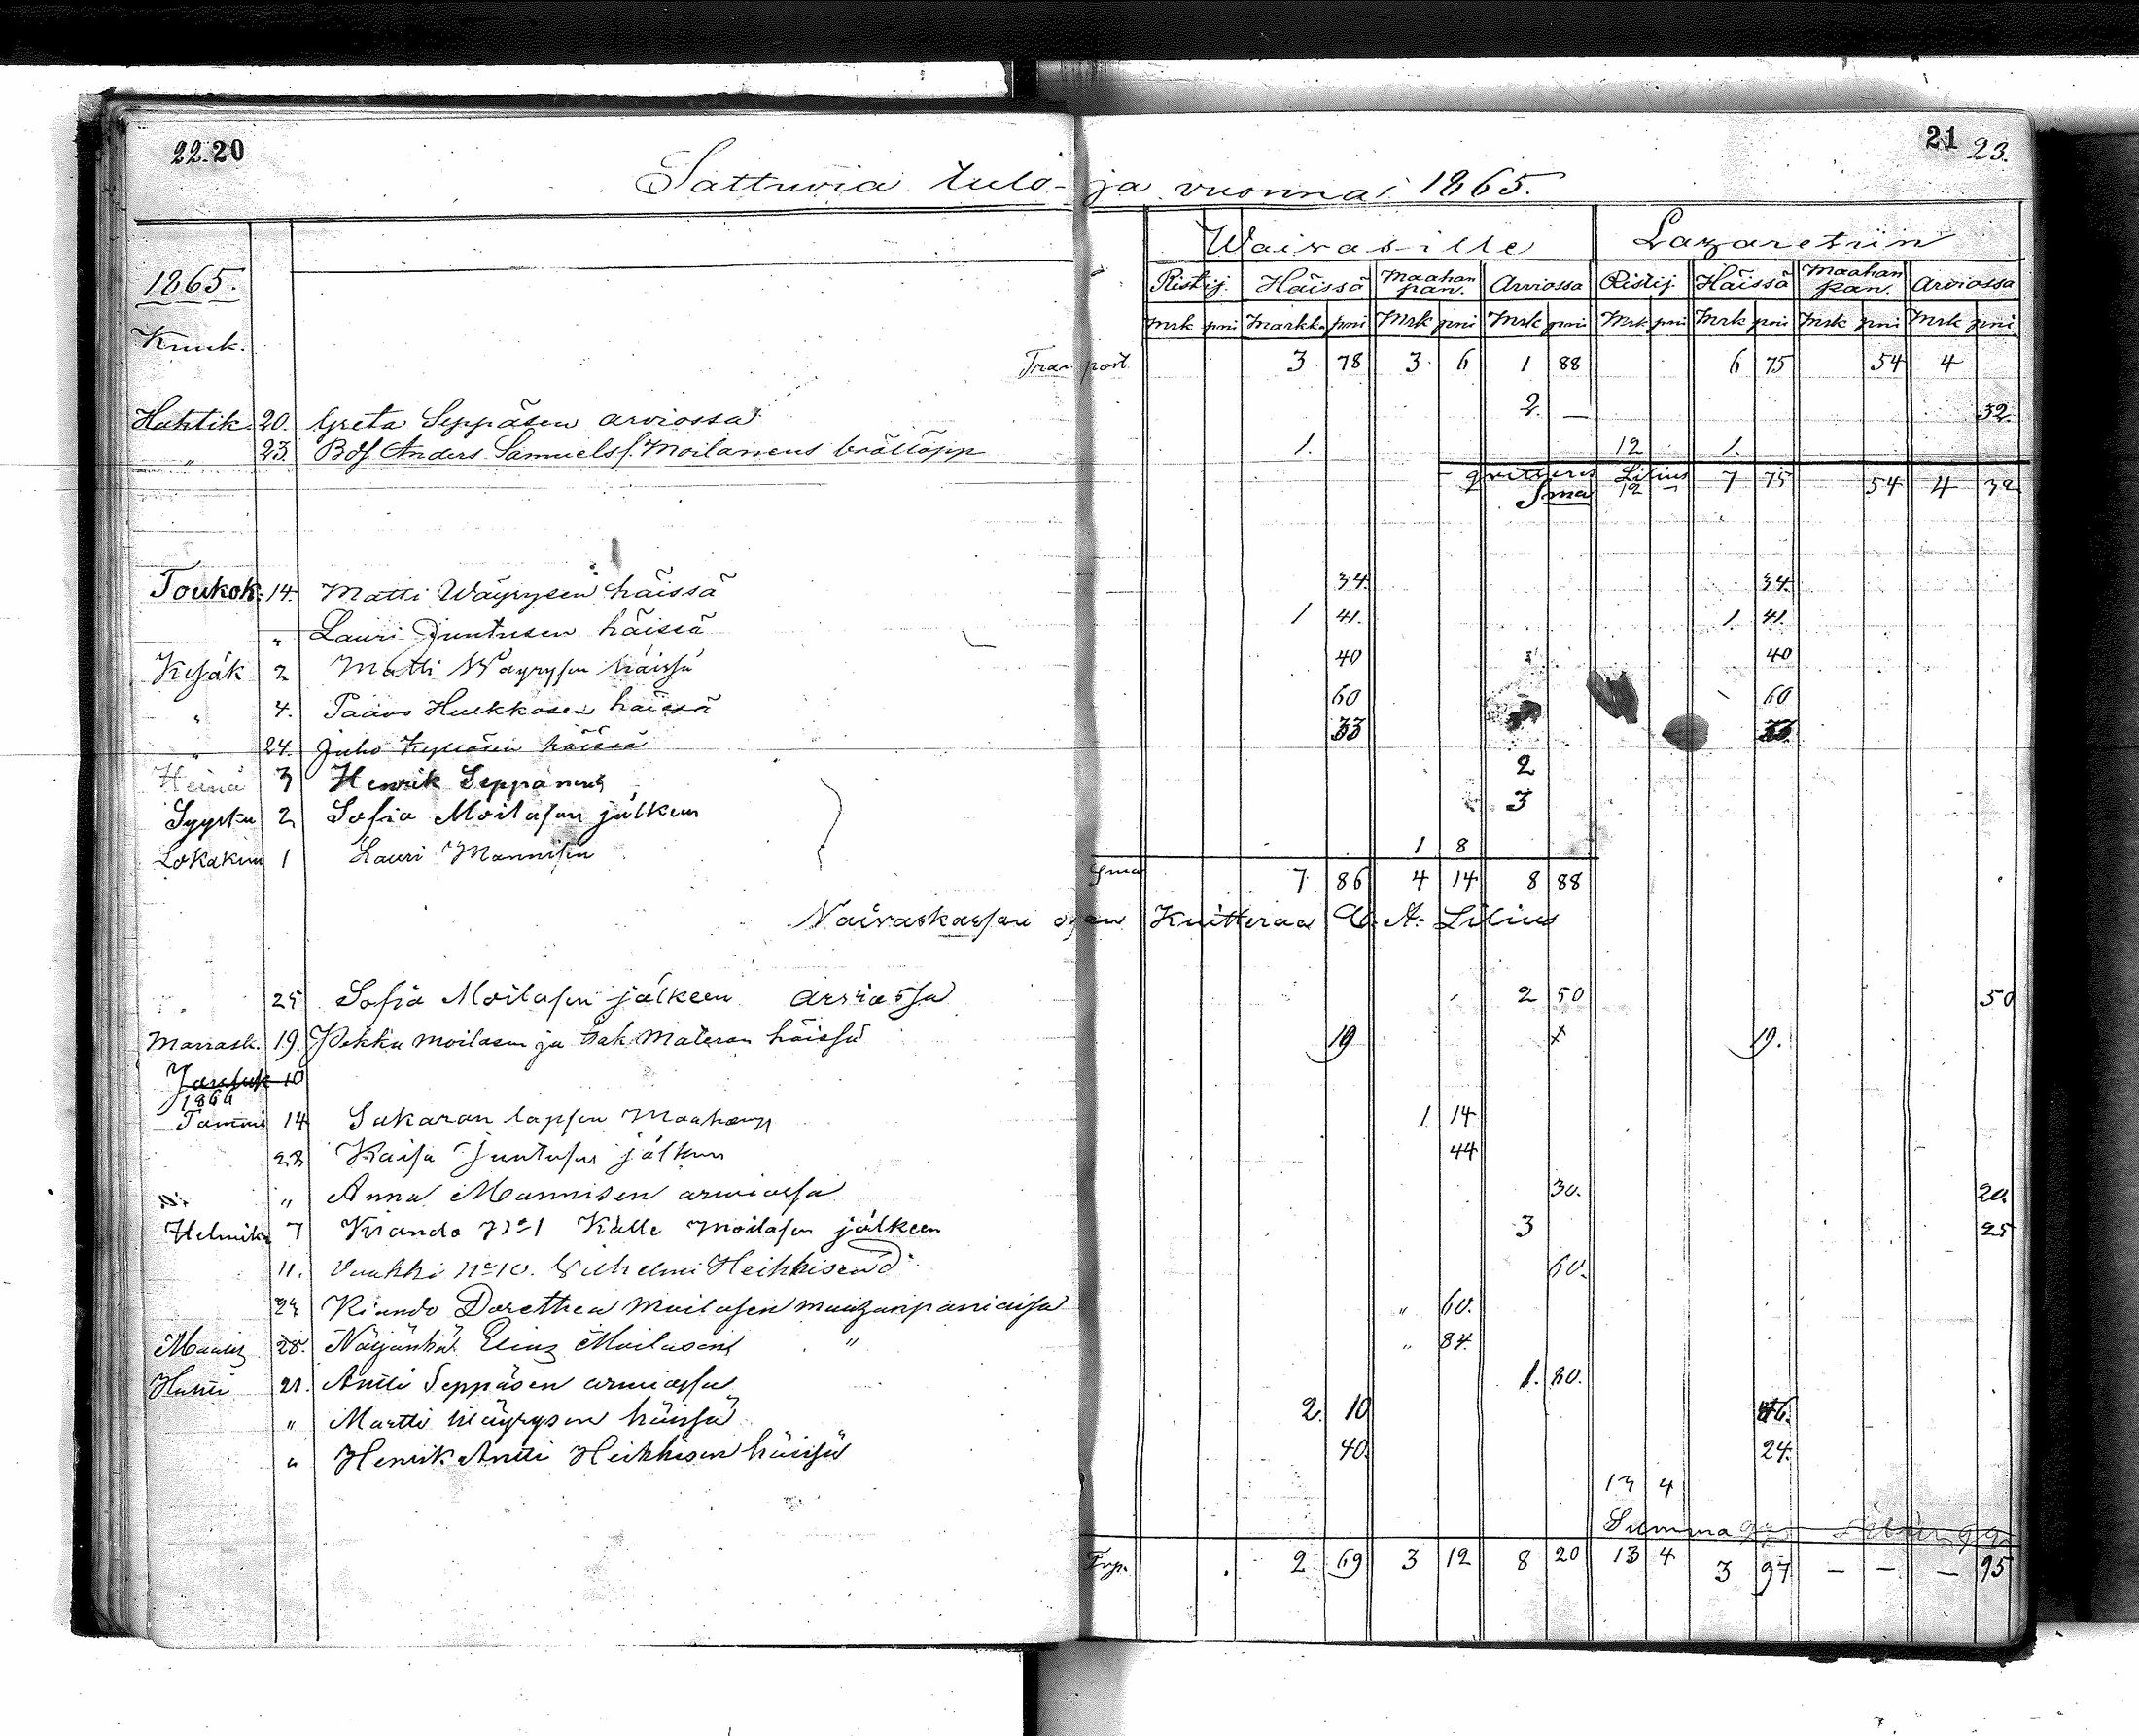 22. 20
21 23.
Sattuvia tulo-ja vuonna 1865.
Waivasille Lazaretiin
1865. Ristij. Häissä Maahan pan. Arviossa Ristij. Häissä Maahan pan. Arviossa
Mrk pni Markka pni Mrk pni Mrk pni Mrk pni Mrk pni Mrk pni Mrk pni
Kuuk.
Transport 3 78 3 6 1 88 6 75 54 4
Huhtik. 20. Greta Seppäsen arviossa 2 — 32.
" 23. Anders Samuelsf. Moilanens bröllopp 1. 12 1.
qvitteras Lilius
Sma 12 — 7 75 54 4 32
Toukok. 14. Matti Wäyrysen häissä 34. 34.
" Lauri Juntusen häissä 1 41. 1. 41.
Kesäk 2 Matti Wäyrysen häissä 40 40
" 4. Paavo Hulkkosen häissä 60 60
" 24. Juho häissä 33 33
Heinä 3 Henrik Seppänens 2
Syysku 2 Sofia Moilasen jälkeen 3
Lokakuu 1 Lauri Mannisen 1 8
Sma 7 86 4 14 8 88
Vaivaskassan osan Kuitteraa A. Lilius
" 25 Sofia Moilasen jälkeen arviossa 2 50 50
Marrask. 19. Pekka Moilasen ja Materan häissä 19 x 19.
10
1866
Tammi 14 Sakaran lapsen Maahanp 1 14
28 Kaisa Juntusen jälkeen 44
" Anna Mannisen arviossa 30. 20.
Helmik. 7 Kiando No 1 Kalle Moilasen jälkeen 3 25
11. Vuokki No 10. Vilhelmi Heikkisen 60.
24 Kiando Dorethea Moilasen maahanpaniaisa " 60.
Maalis 28. Näljänkä Moilasen " " 84.
Huhti 21. Antti Seppäsen arviossa 1. 80.
" Martti Wäyrysen häissä 2. 10 46.
" Henrik Antti Heikkisen häissä 40. 24.
13 4
Summa
Trp. 2 69 3 12 8 20 13 4 3 97 — — — 95